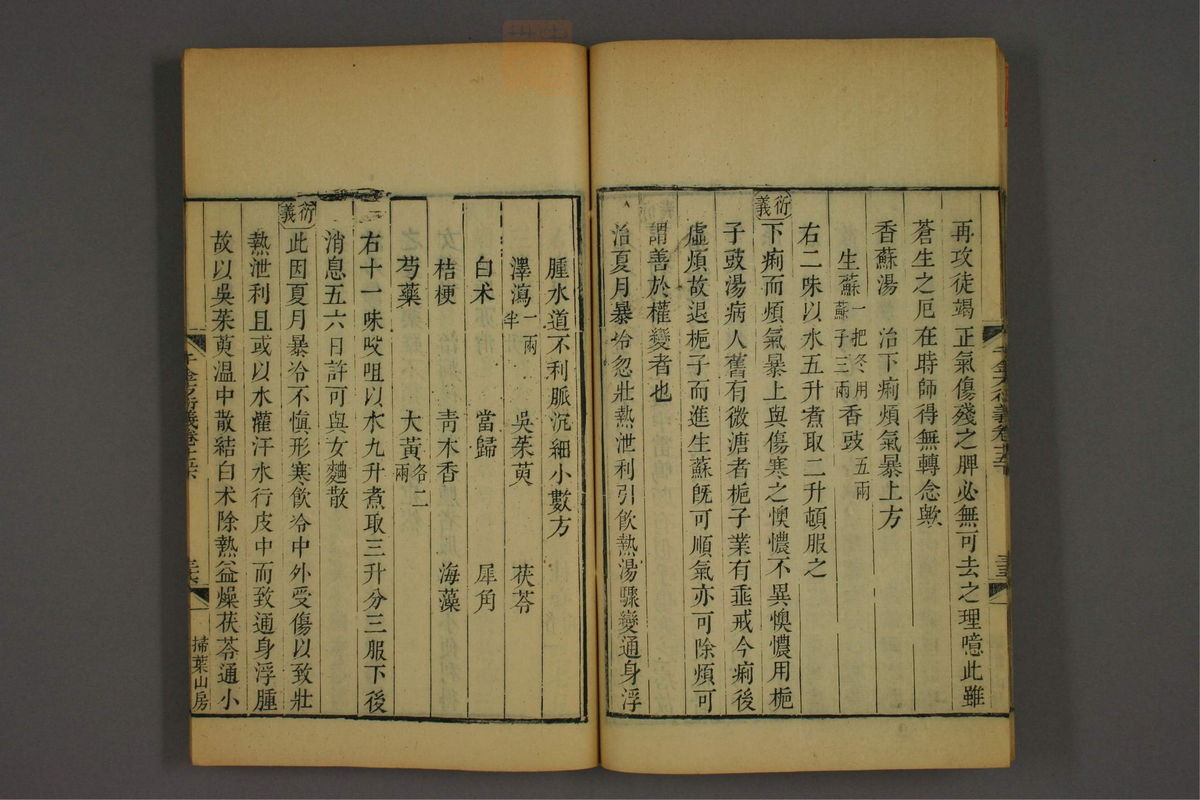 再攻徒竭正氣傷殘之脾必無可去之理噫此雖
蒼生之厄在時師得無轉念歟
香蘇湯　治下痢煩氣暴上方
生蘇一把冬用蘇子三兩香豉五兩
右二味以水五升煮取二升頓服之
衍義下痢而煩氣暴上與傷寒之懊憹不異懊憹用梔
子豉湯病人舊有微溏者梔子業有垂戒今痢後
虛煩故退梔子而進生蘇旣可順氣亦可除煩可
謂善於權變者也
治夏月暴冷忽壯熱泄利引飲熱湯驟變通身浮
腫水道不利脈沉細小數方
澤瀉一兩半　吳茱萸　茯苓
白术　當歸　犀角
桔梗　靑木香　海藻
芍藥　大黃各二兩
右十一味㕮咀以水九升煮取三升分三服下後
消息五六日許可與女麯散
衍義此因夏月暴冷不慎形寒飲冷中外受傷以致壯
熱泄利且或以水灌汗水行皮中而致通身浮腫
故以吳茱萸溫中散結白术除熱益燥茯苓通小
掃葉山房